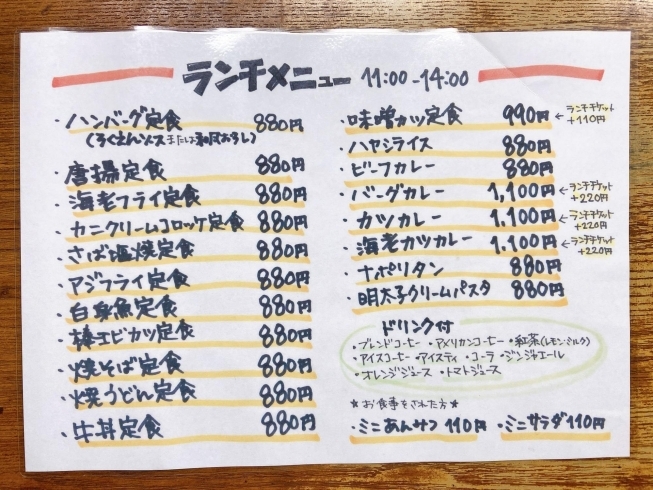 ランチメニュー 11:00-14:00
・ハンバーグ定食 880円
(ろくえんソースまたは和風おろし)
・唐揚定食 880円
・海老フライ定食 880円
・カニクリームコロッケ定食 880円
・さば塩焼定食 880円
・アジフライ定食 880円
・白身魚定食 880円
・棒エビカツ定食 880円
・焼そば定食 880円
・焼うどん定食 880円
・牛丼定食 880円
・味噌カツ定食 990円 ←ランチチケット
+110円
・ハヤシライス 880円
・ビーフカレー 880円
・バーグカレー 1,100円 ←ランチチケット
+220円
・カツカレー 1.100円 ←ランチチケット
+220円
・海老カツカレー 1.100円 ←ランチチケット
+220円
・ナポリタン 880円
・明太子クリームパスタ 880円
ドリンク付
・ブレンドコーヒー ・アメリカンコーヒー ・紅茶(レモン・ミルク)
・アイスコーヒー ・アイスティ ・コーラ ・ジンジャエール
・オレンジジュース ・トマトジュース
★お食事をされた方★
・ミニあんサンプ 110円 ・ミニサラダ110円